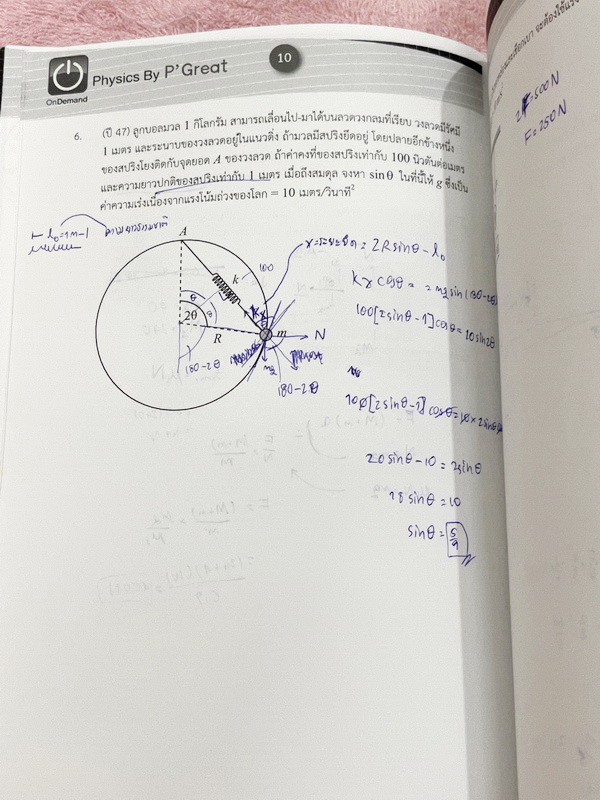 OnDemand
Physics By P'Great
10
6. (ปี 47) ลูกบอลมวล 1 กิโลกรัม สามารถเลื่อนไป-มาได้บนลวดวงกลมที่เรียบ วงลวดมีรัศมี
1 เมตร และระนาบของวงลวดอยู่ในแนวดิ่ง ถ้ามวลมีสปริงยึดอยู่ โดยปลายอีกข้างหนึ่ง
ของสปริงโยงติดกับจุดยอด A ของวงลวด ถ้าค่าคงที่ของสปริงเท่ากับ 100 นิวตันต่อเมตร
และความยาวปกติของสปริงเท่ากับ 1 เมตร เมื่อถึงสมดุล จงหา sin θ ในที่นี้ให้ g ซึ่งเป็น
ค่าความเร่งเนื่องจากแรงโน้มถ่วงของโลก = 10 เมตร/วินาที²
2F=500 N
F=250 N
l₀=1m ความยาวธรรมชาติ
A
x=ระยะยืด = 2Rsinθ - l₀
k
100
θ
2θ
θ
R
kx
m
N
mg
180-2θ
180-2θ
kx cosθ = mg sin(180-2θ)
100[2sinθ-1]cosθ=10sin2θ
20sinθ-10=2sinθ
18sinθ=10
sinθ=5/9